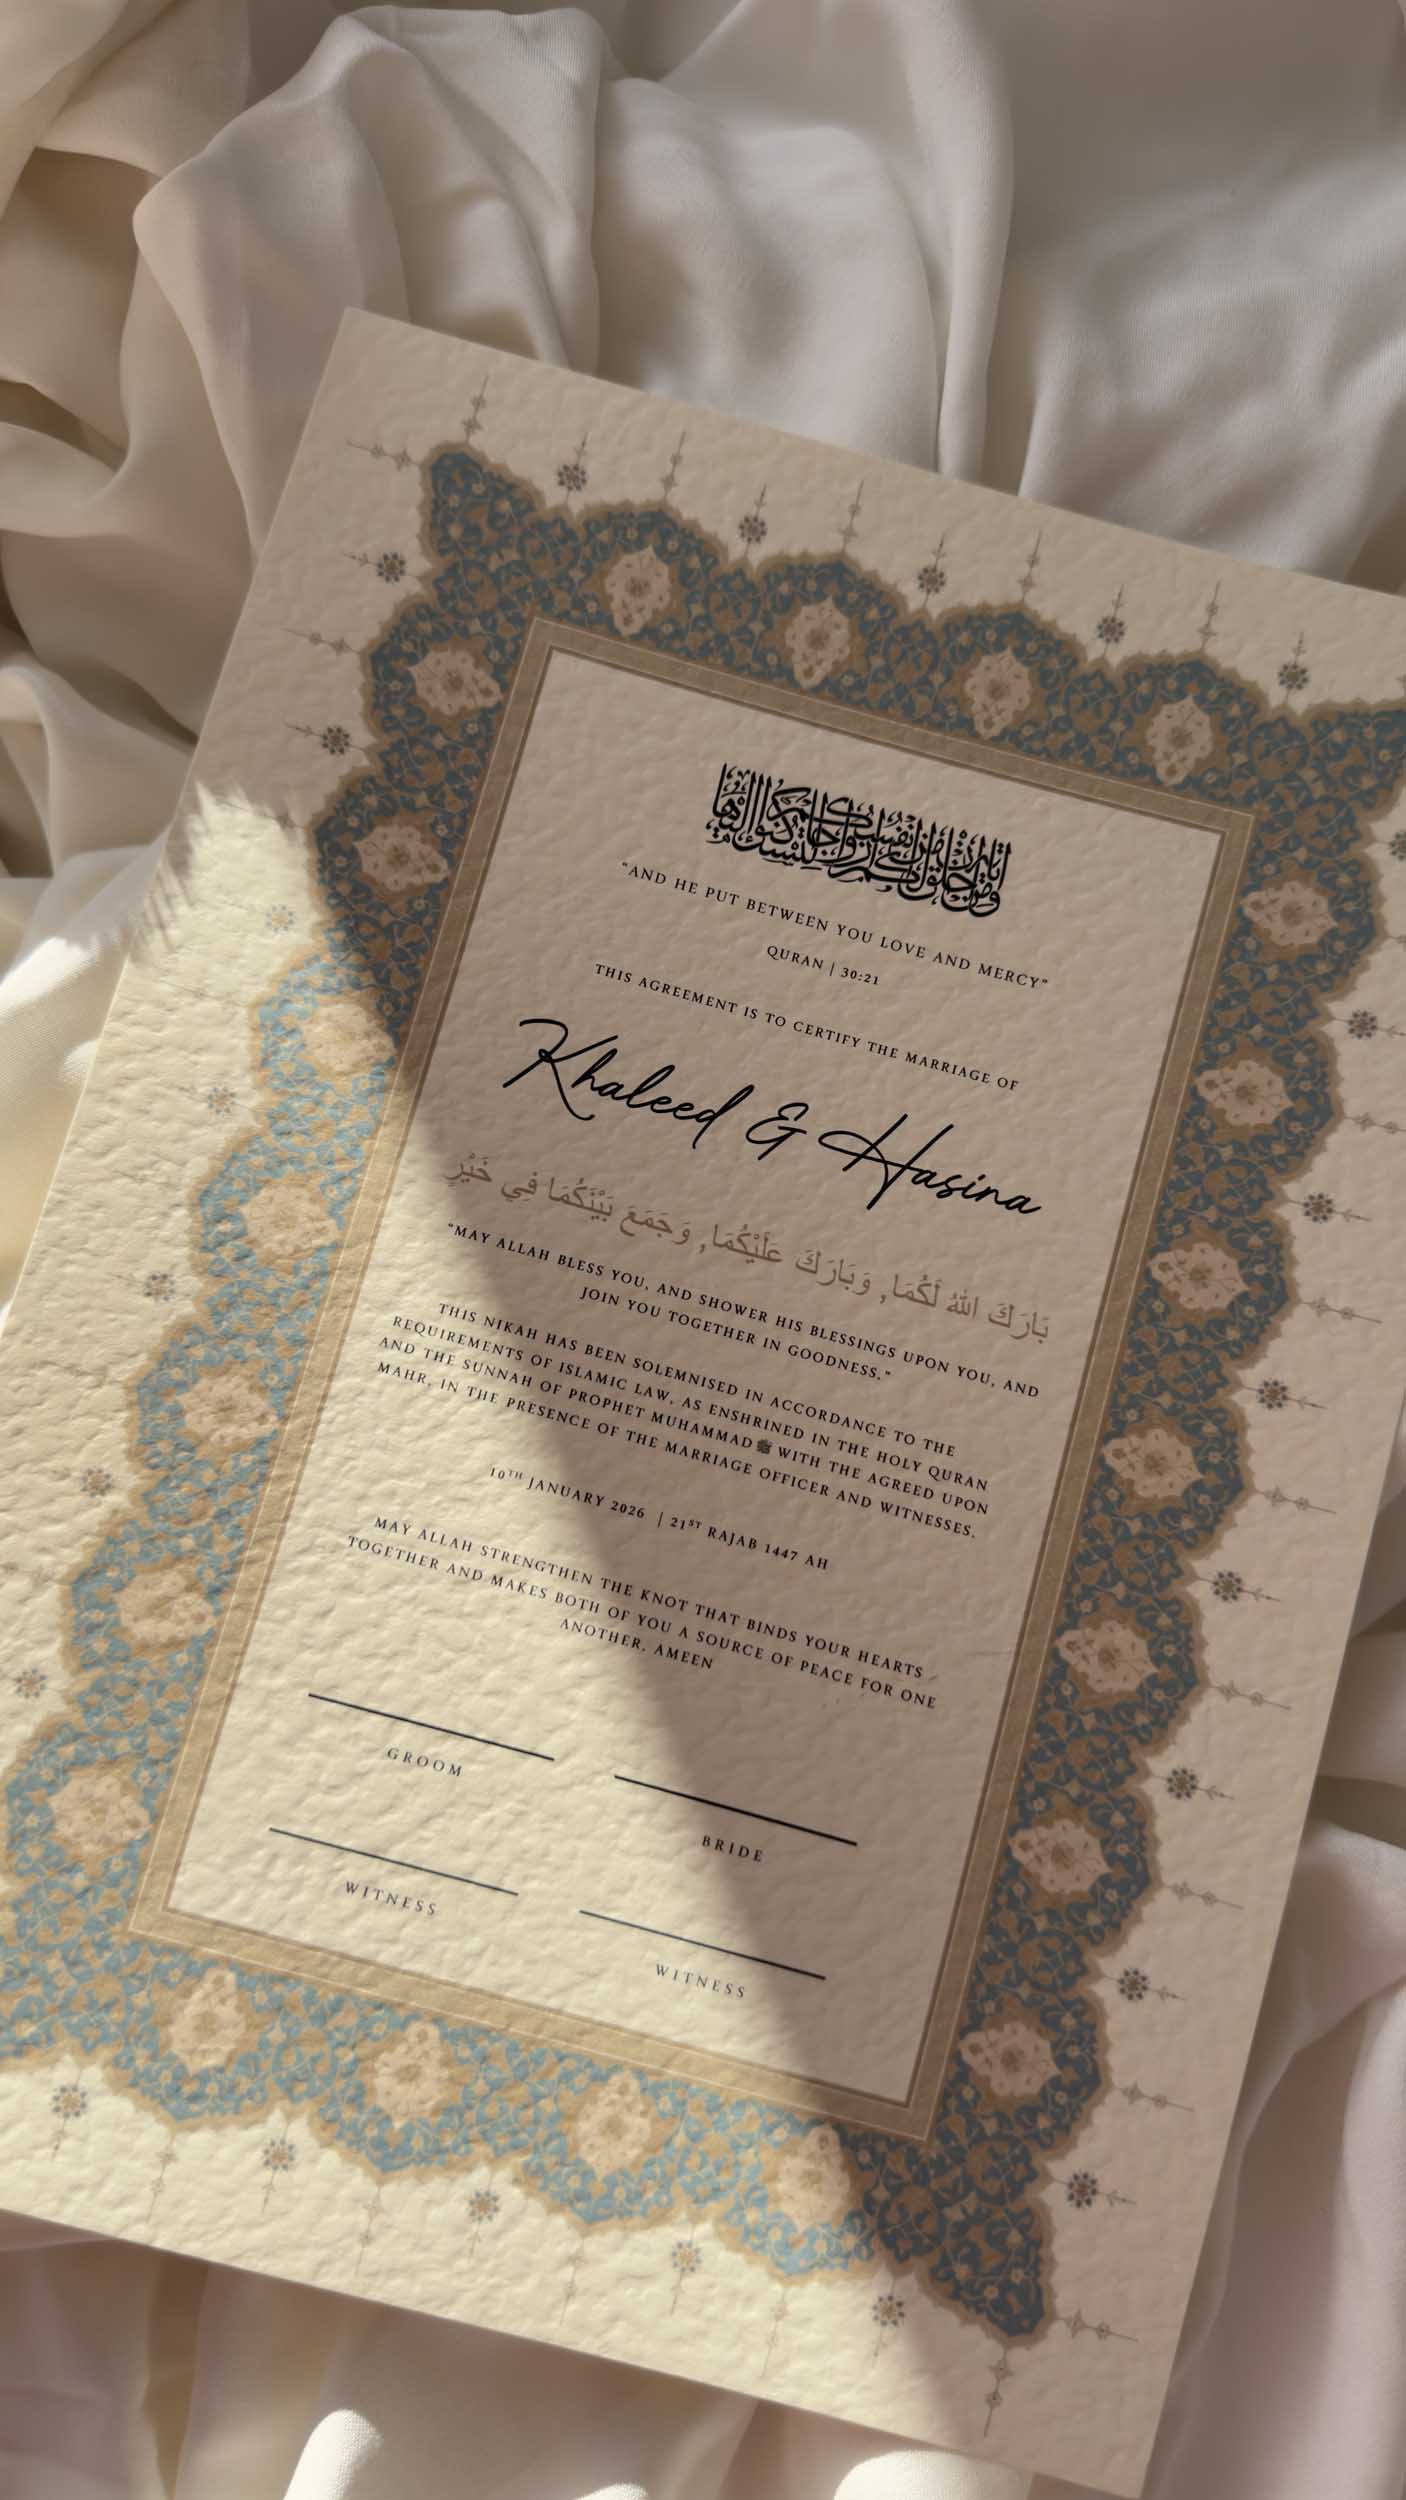 ومن آياته أن خلق لكم من أنفسكم أزواجا لتسكنوا إليها
"AND HE PUT BETWEEN YOU LOVE AND MERCY"
QURAN | 30:21
THIS AGREEMENT IS TO CERTIFY THE MARRIAGE OF
Khaleed & Hasina
بَارَكَ اللهُ لَكُمَا, وَبَارَكَ عَلَيْكُمَا, وَجَمَعَ بَيْنَكُمَا فِي خَيْرٍ
"MAY ALLAH BLESS YOU, AND SHOWER HIS BLESSINGS UPON YOU, AND
JOIN YOU TOGETHER IN GOODNESS."
THIS NIKAH HAS BEEN SOLEMNISED IN ACCORDANCE TO THE
REQUIREMENTS OF ISLAMIC LAW, AS ENSHRINED IN THE HOLY QURAN
AND THE SUNNAH OF PROPHET MUHAMMAD ﷺ WITH THE AGREED UPON
MAHR, IN THE PRESENCE OF THE MARRIAGE OFFICER AND WITNESSES.
10TH JANUARY 2026 | 21ST RAJAB 1447 AH
MAY ALLAH STRENGTHEN THE KNOT THAT BINDS YOUR HEARTS
TOGETHER AND MAKES BOTH OF YOU A SOURCE OF PEACE FOR ONE
ANOTHER. AMEEN
GROOM
BRIDE
WITNESS
WITNESS